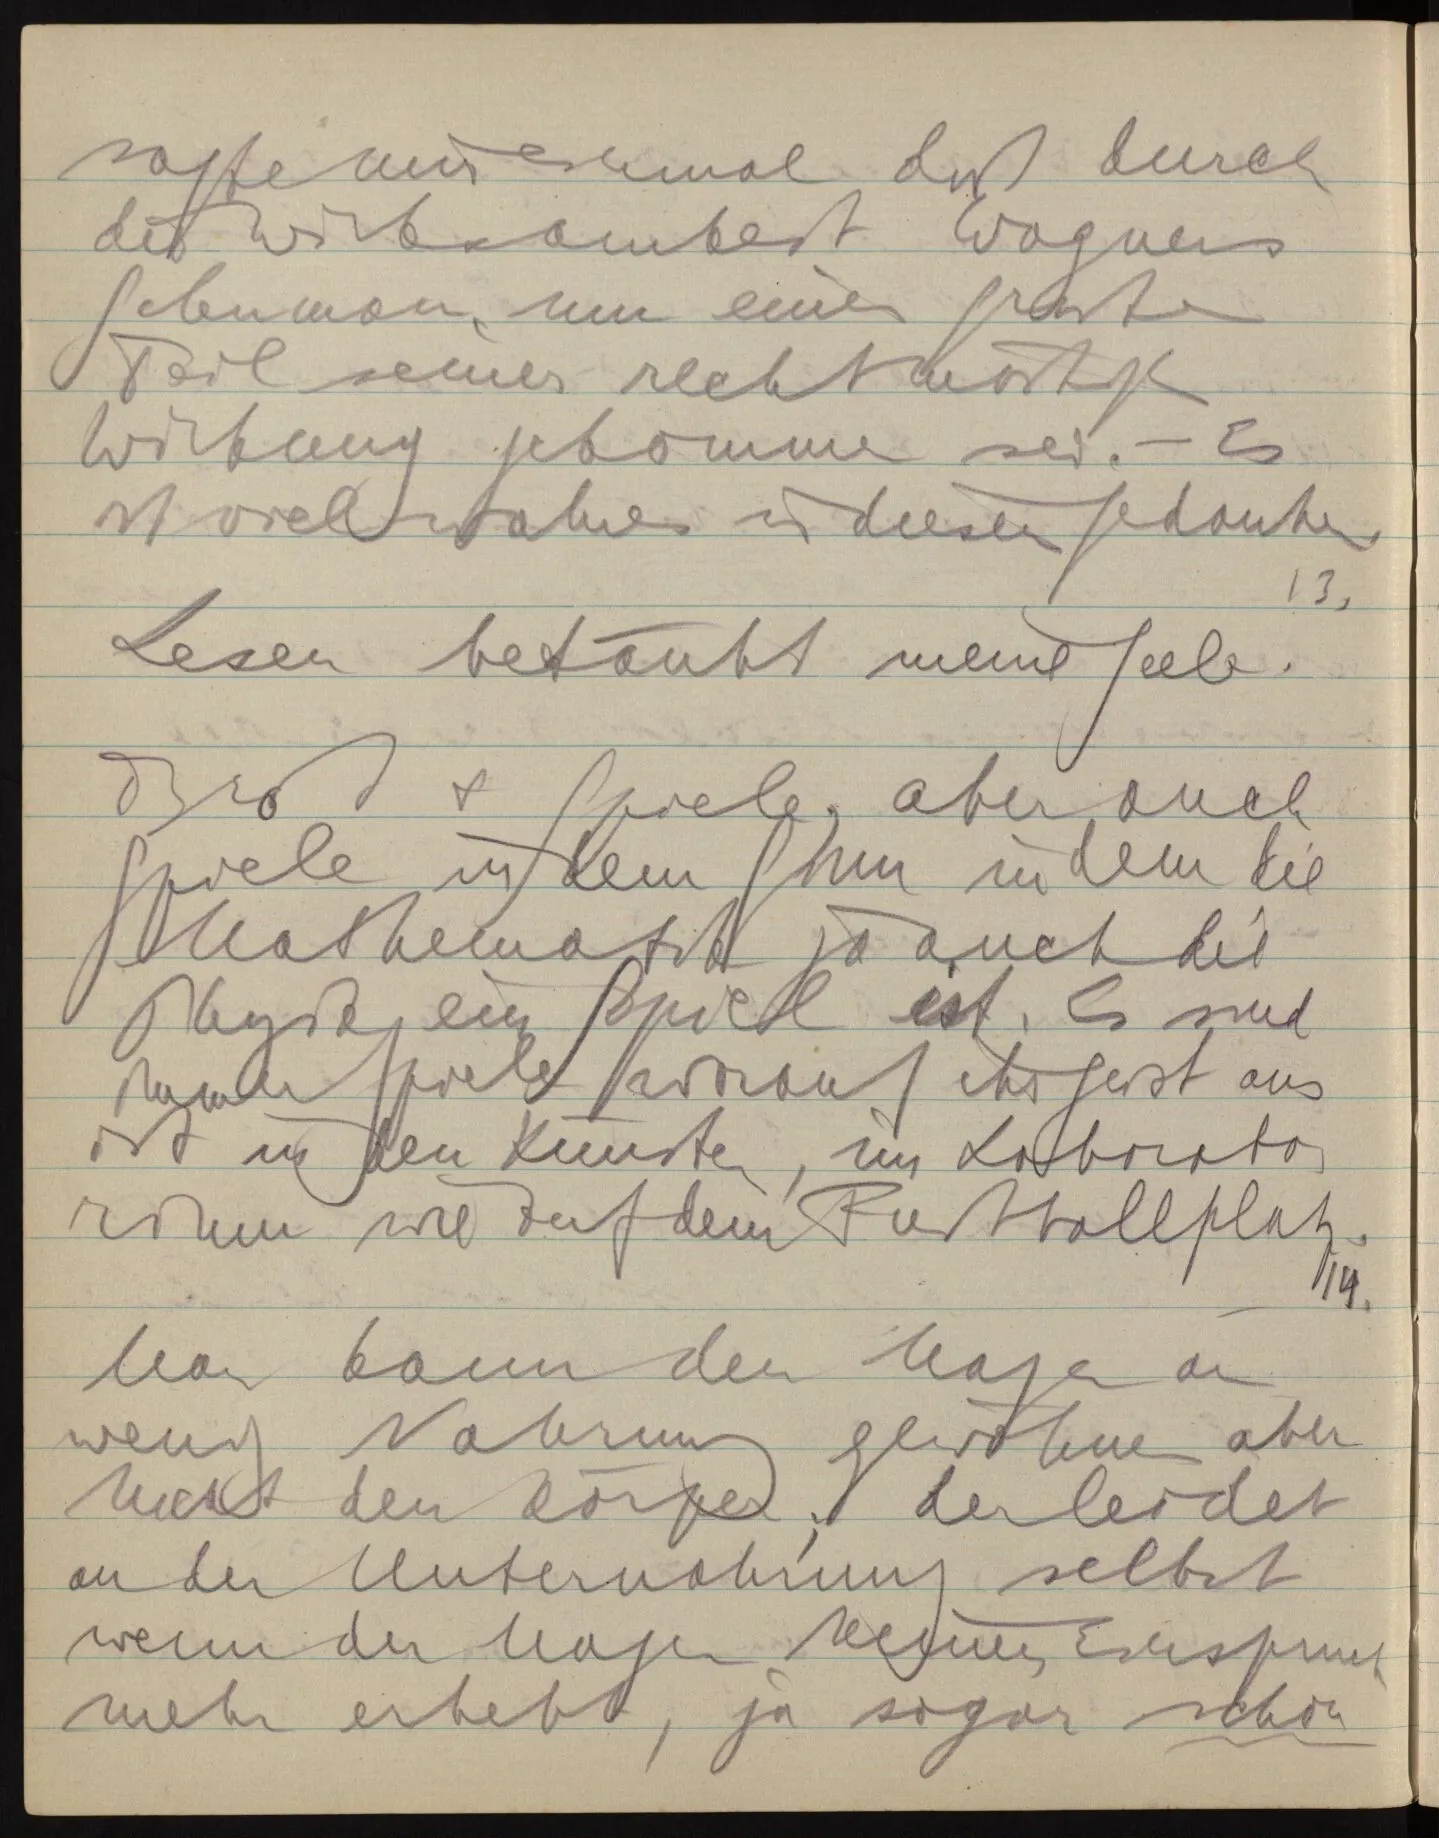 sagte mir einmal daß durch
die Wirksamkeit Wagners
Schumann um einen großen
Teil seiner rechtmäßigen
Wirkung gekommen sei. – Es
ist viel wahres in diesem Gedanken.
13.
Lesen betäubt meine Seele.
Brot & Spiele, aber auch
Spiele in dem Sinn in dem die
Mathematik ja auch die
Physik ein Spiel ist. Es sind
immer Spiele worauf ihr Geist aus
ist in den Künsten, im Laborato
rium wie auf dem Fustballplatz.
14.
Man kann den Magen an
wenig Nahrung gewöhnen aber
nicht den Körper; der leidet
an der Unternahrung selbst
wenn der Magen keinen Einspruch
mehr erhebt, ja sogar schon